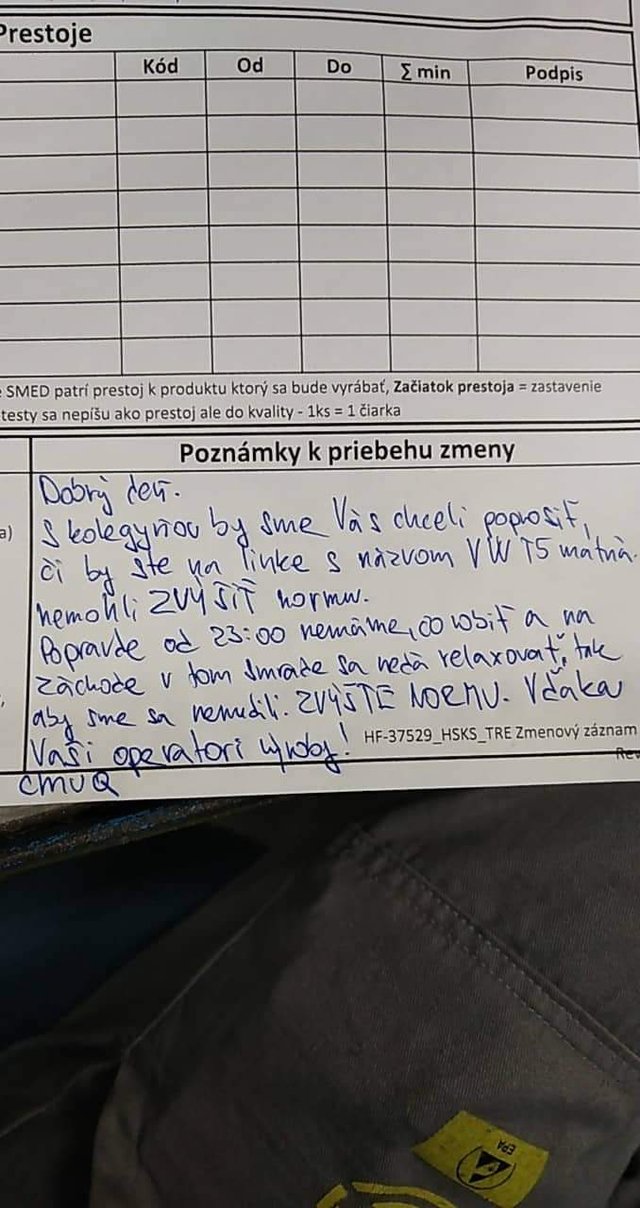 Prestoje
Kód Od Do ∑ min Podpis
SMED patrí prestoj k produktu ktorý sa bude vyrábať, Začiatok prestoja = zastavenie
testy sa nepíšu ako prestoj ale do kvality - 1ks = 1 čiarka
Poznámky k priebehu zmeny
a)
Dobrý deň.
S kolegyňou by sme Vás chceli poprosiť,
či by ste na linke s názvom VW T5 matná
nemohli ZVÝŠIŤ normu.
Popravde od 23:00 nemáme, čo robiť a na
záchode v tom smrade sa nedá relaxovať, tak
aby sme sa nenudili. ZVÝŠTE NORMU. Vďaka
Vaši operatori výroby!
HF-37529_HSKS_TRE Zmenový záznam
Rev
CMUQ
EPA